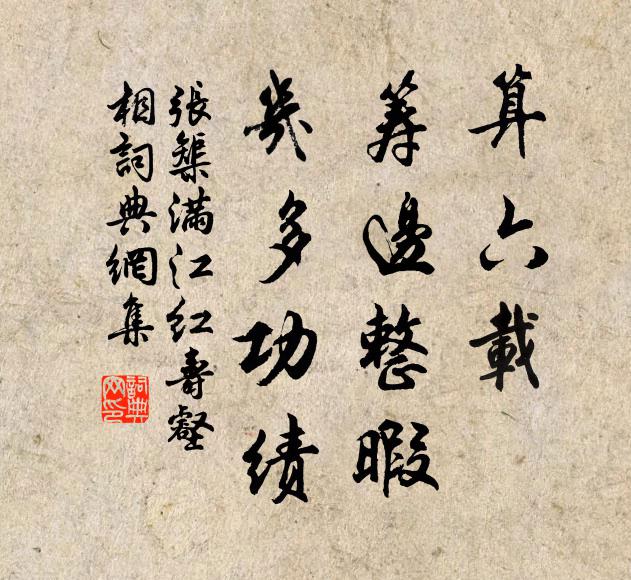 算六載
筹邊整暇
幾多功績
張榘滿江红壽壑
相詞典網集
詞典
网印